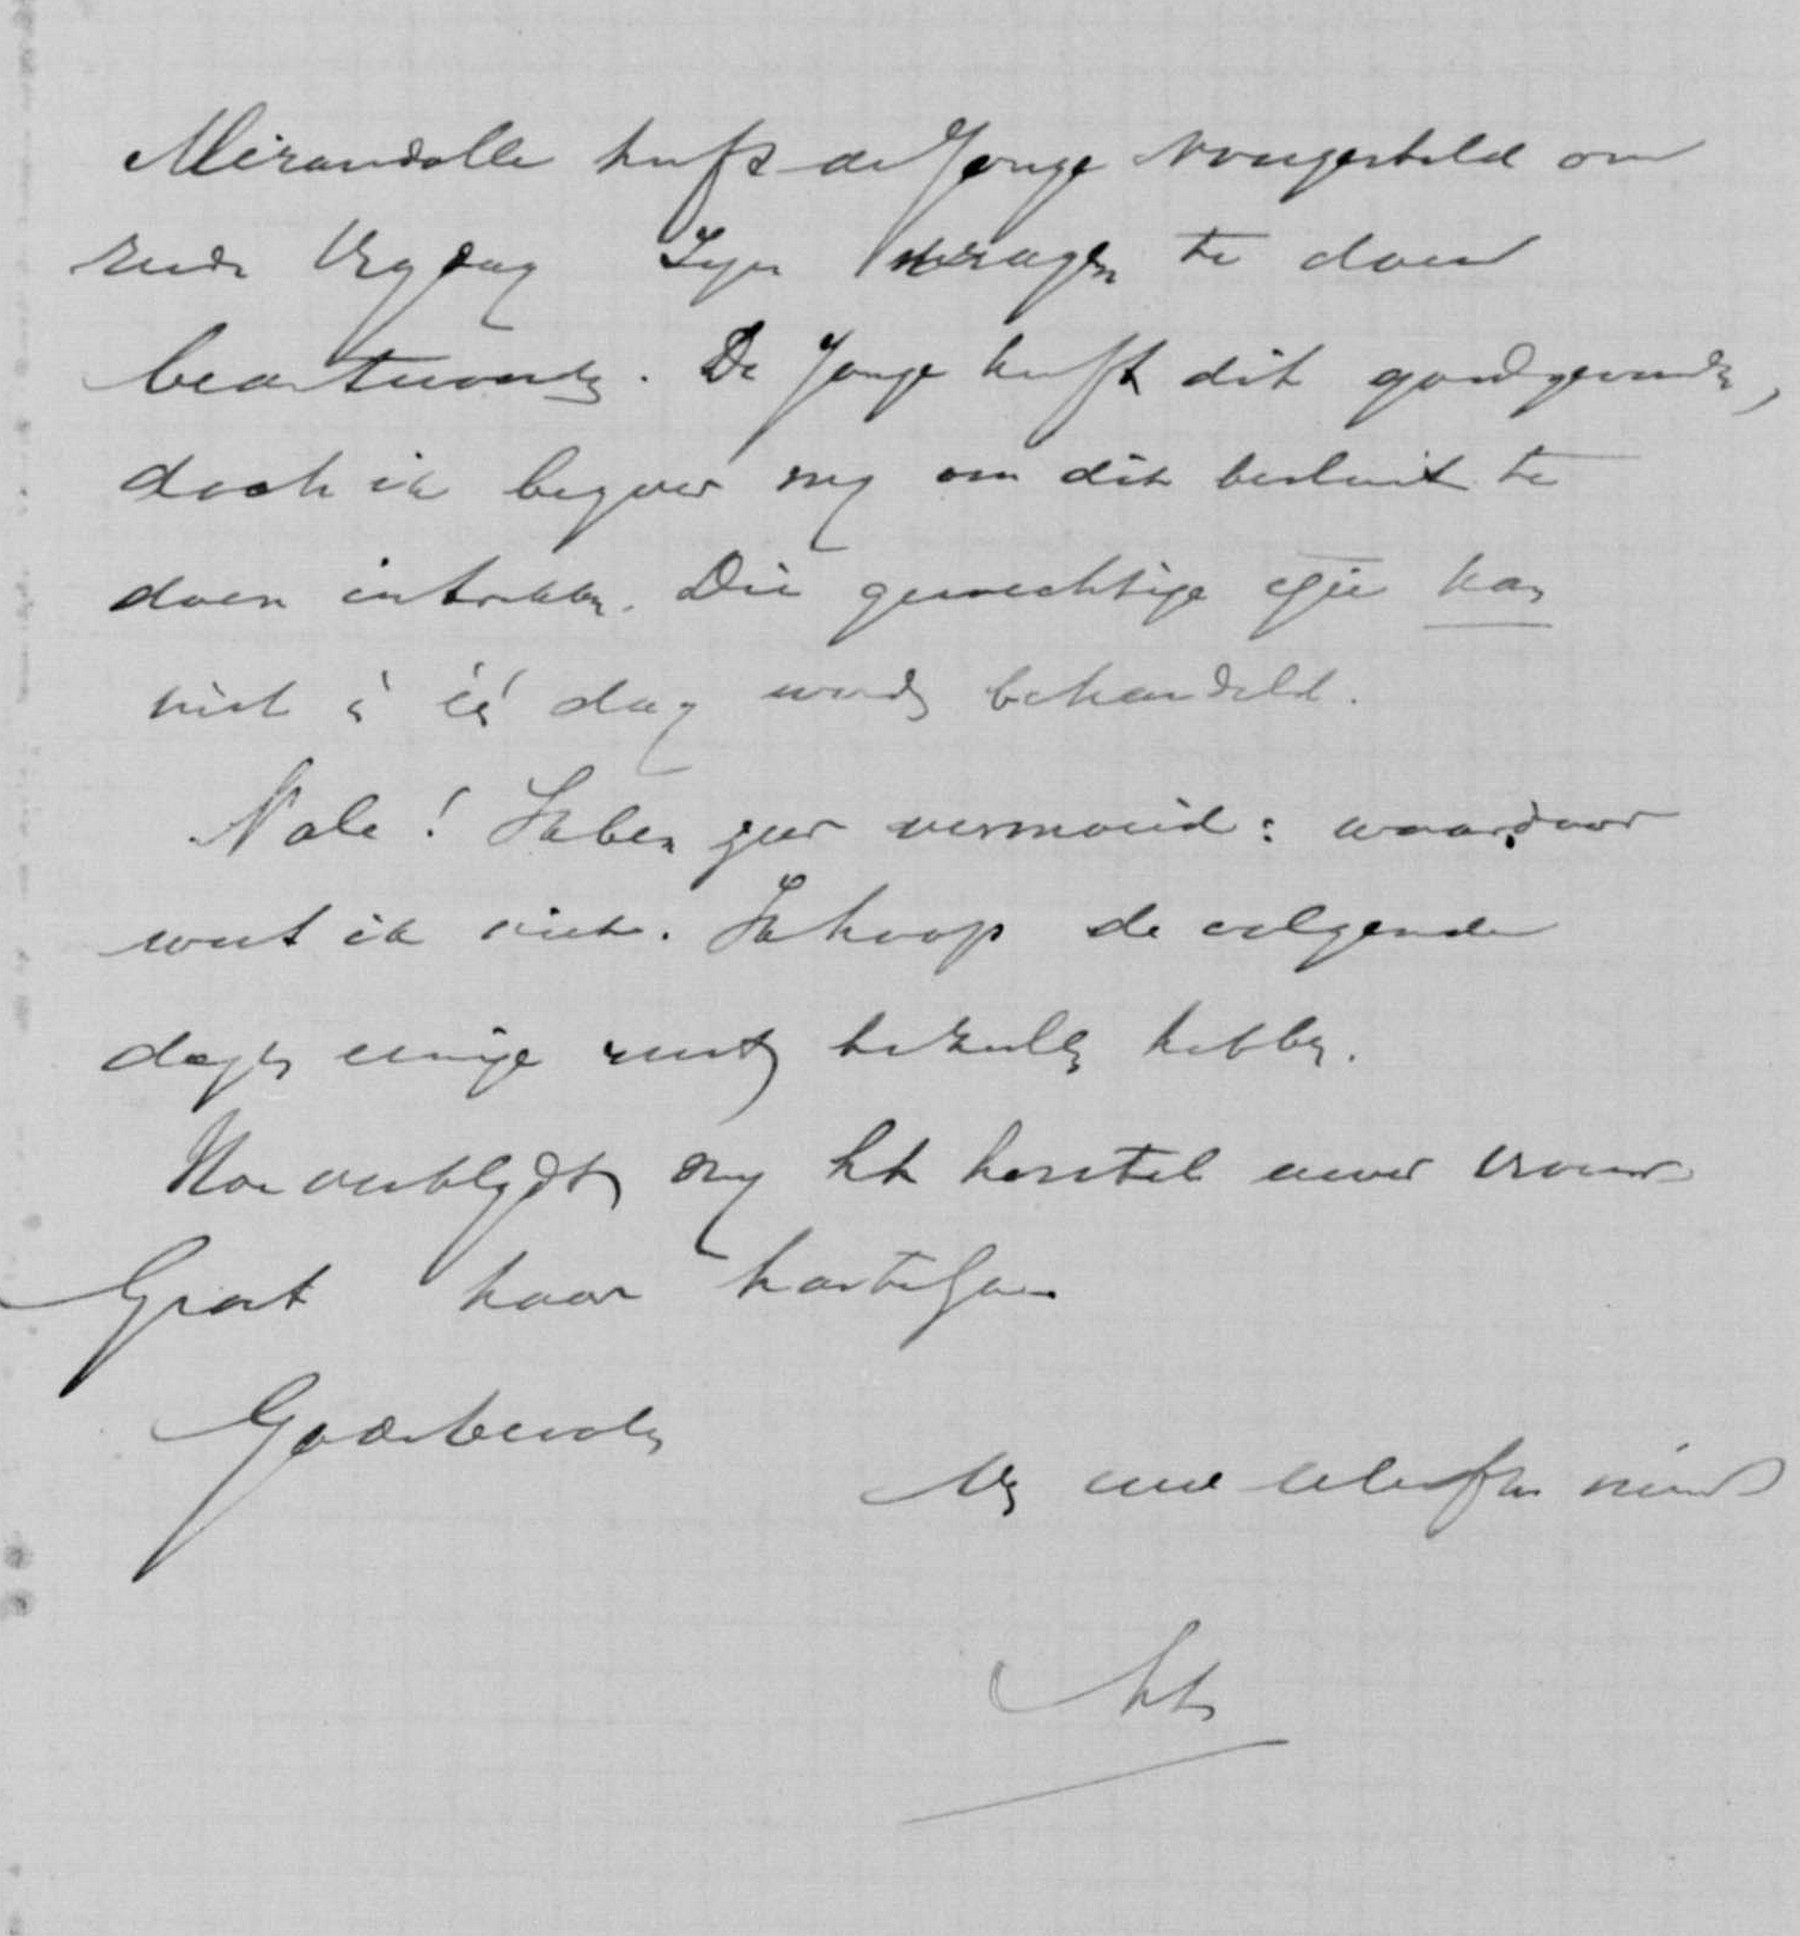 Mirandolle heeft de Jonge voorgesteld om
reeds Vrydag Zyn vragen te doen
beantwoorden. De Jonge heeft dit goedgevonden,
doch ik beyver my om dit besluit te
doen intrekken. Die gewichtige qtie kan
niet in één dag worden behandeld.
Vale! Ik ben zeer vermoeid: waardoor
weet ik niet. Ik hoop de volgende
dagen eenige rust te zullen hebben.
Hoe verblydt my het herstel uwer vrouw
Groet haar hartelyk.
Goedenavond
uw vriend